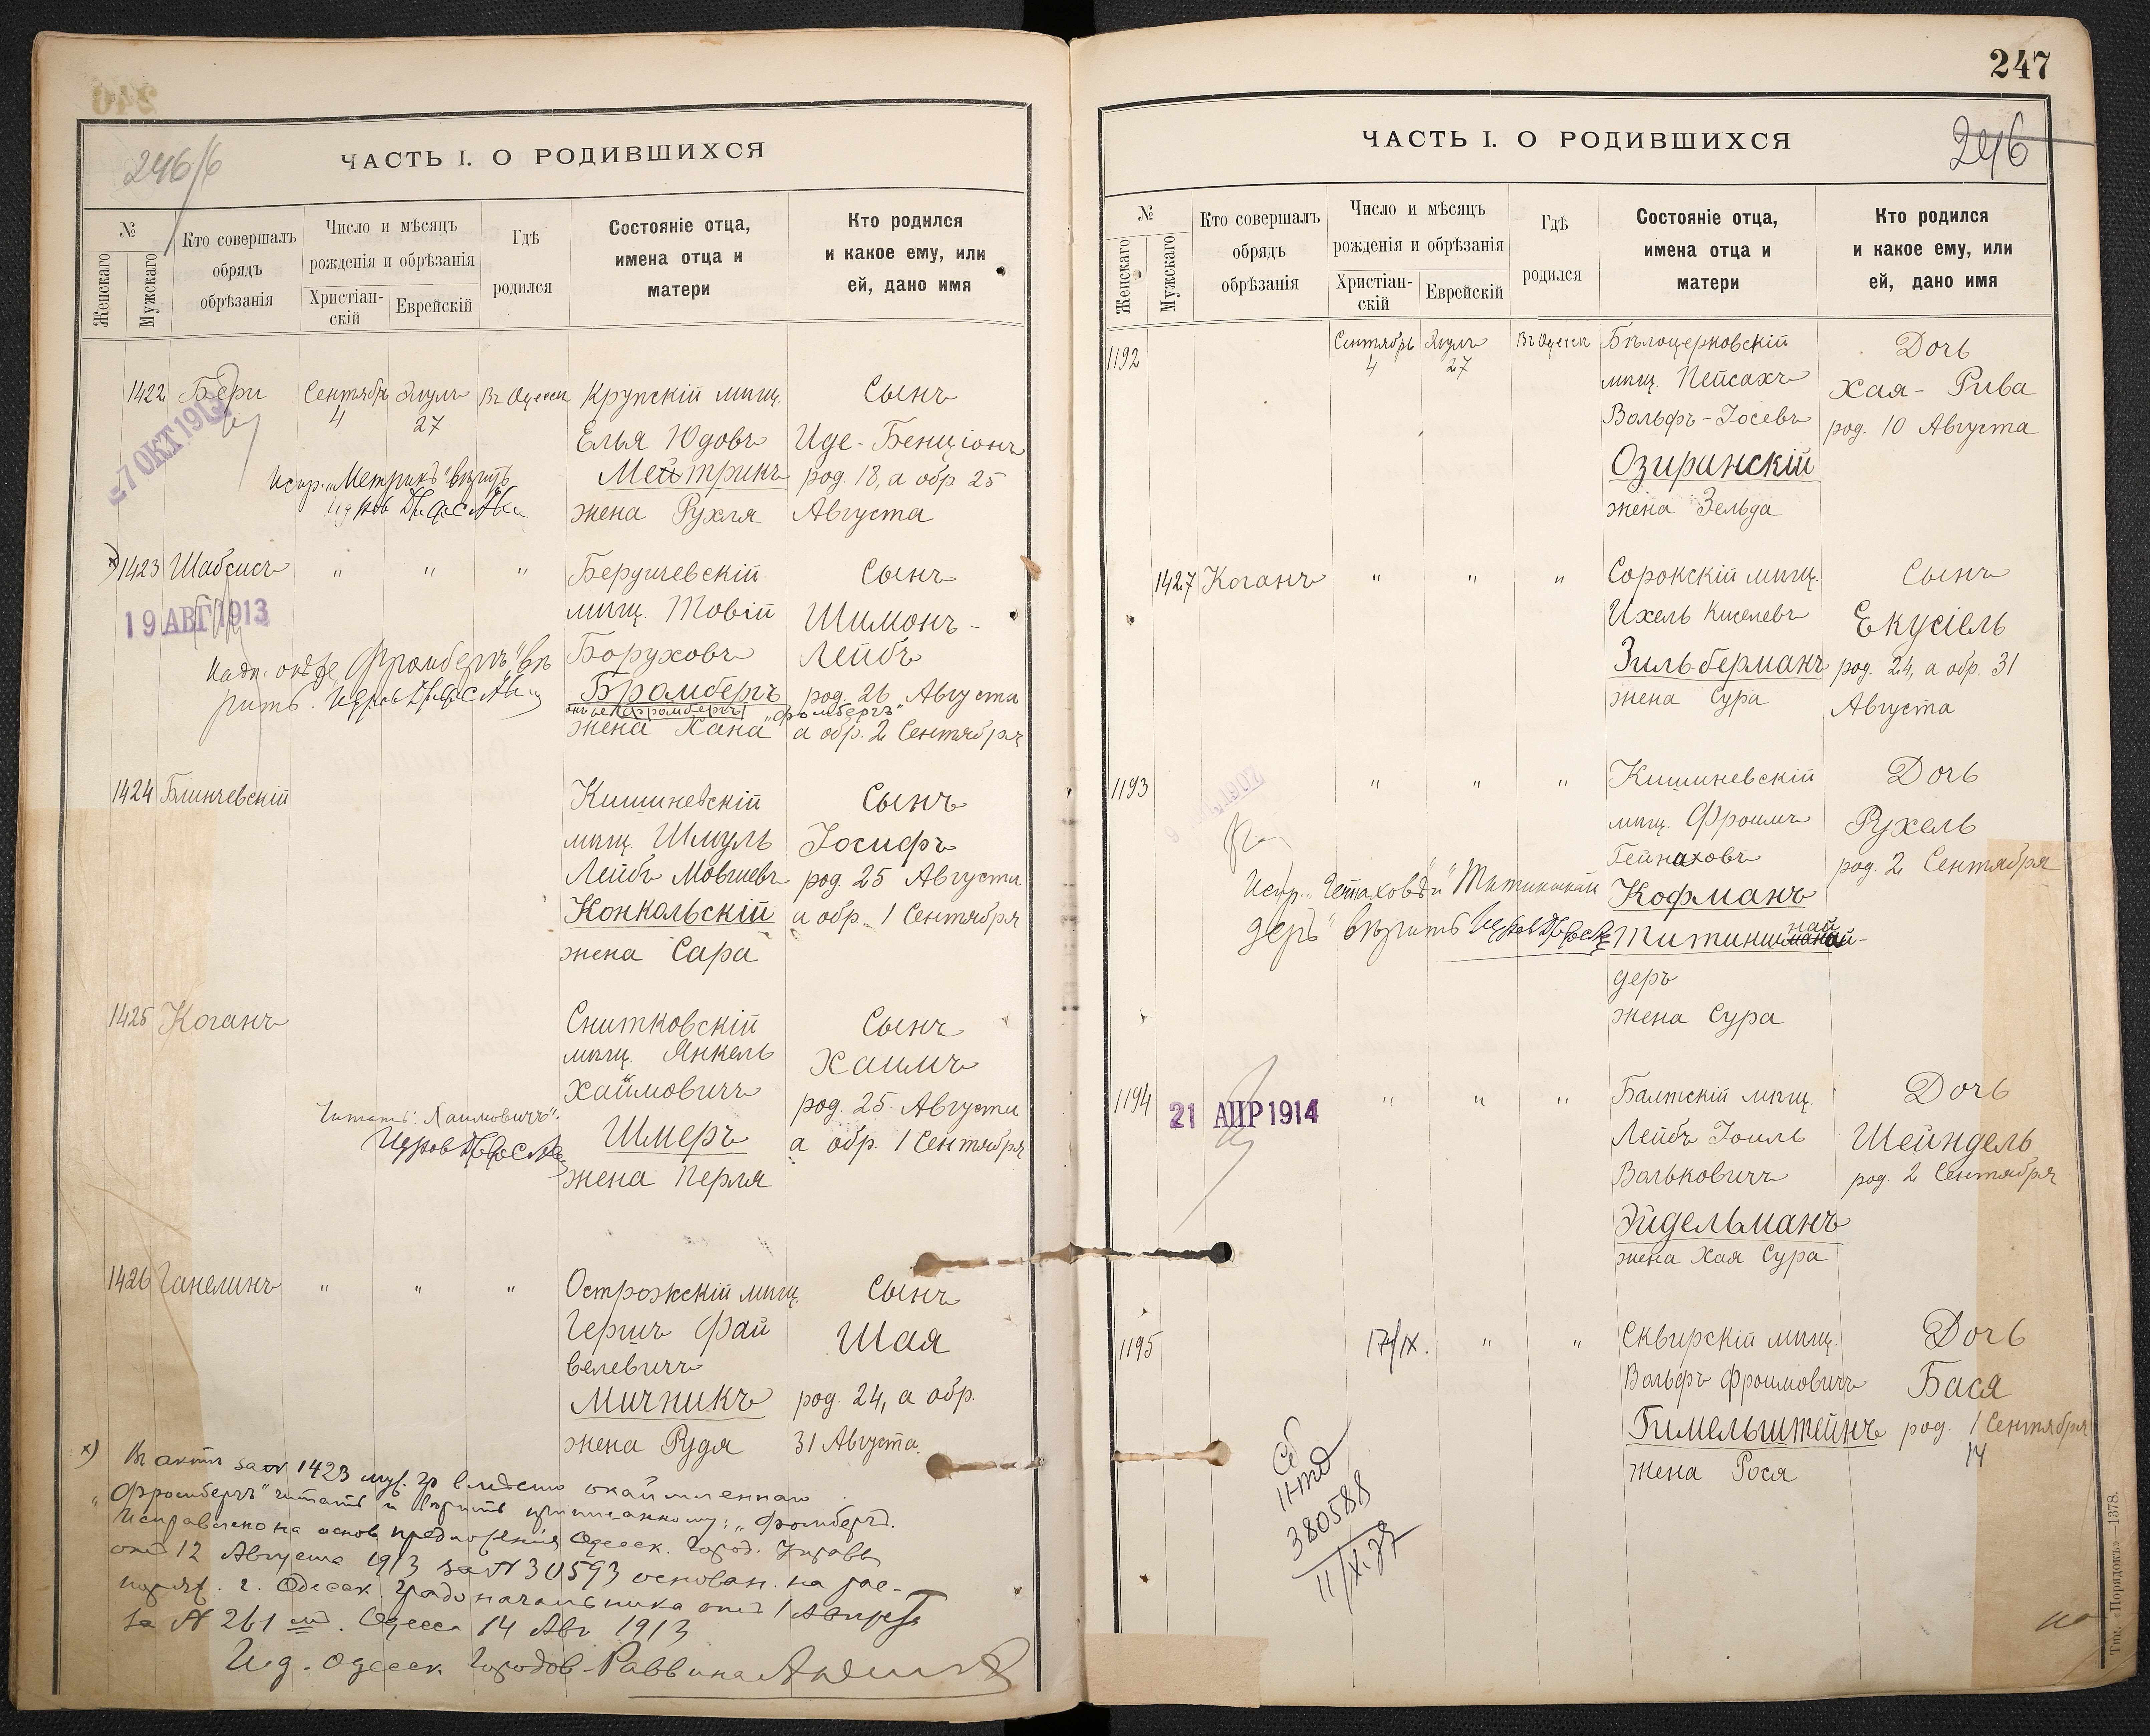 246/б
ЧАСТЬ I. О РОДИВШИХСЯ
№
Женскаго
Мужскаго
Кто совершалъ
обрядъ
обрѣзанія
Число и мѣсяцъ
рожденія и обрѣзанія
Христіан-
скій
Еврейскій
Гдѣ
родился
Состояніе отца,
имена отца и
матери
Кто родился
и какое ему, или
ей, дано имя
1422 Бери Сентябрь 4 Элулъ 27 Въ Одессѣ
Крупскій мѣщ.
Елья Юдовъ
Мейтрикъ
жена Рухля
Сынъ
Иде-Бенціонъ
род. 18, а обр 25
Августа
7 ОКТ 1913
1423 Шабсисъ " " "
Бердичевскій
мѣщ. Товій
Боруховъ
Бромбергъ
жена Хана
Сынъ
Шимонъ-
Лейбъ
род. 26 Августа
"Фромбергъ"
а обр. 2 Сентября
19 АВГ 1913
1424 Блинчевскій
Кишиневскій
мѣщ. Шмуль
Лейбъ Мовшевъ
Конкольскій
жена Сара
Сынъ
Іосифъ
род. 25 Августа
а обр. 1 Сентября
1425 Коганъ
Снитковскій
мѣщ. Янкель
Хаимовичъ
Шмеръ
жена Перля
Сынъ
Хаимъ
род. 25 Августа
а обр. 1 Сентября
Читать: "Хаимовичъ".
1426 Ганелинъ " " "
Острожскій мѣщ.
Гершъ Фай
велевичъ
Мичникъ
жена Рудя
Сынъ
Шая
род. 24, а обр.
31 Августа.
х) Въ актѣ за № 1423 муж. гр вмѣсто окаймленнаго
"Фромбергъ" читать и вѣрить приписанному: "Фомбергъ".
Исправлено на основ. предложенія Одесск. Город. Управы
отъ 12 Августа 1913 за № 30593 основан. на рас-
поряж. г. Одесск. градоначальника отъ 1 Августа
за № 261. Одесса 14 Авг 1913
И.д. Одесск. Городов. Раввина
247
246
ЧАСТЬ I. О РОДИВШИХСЯ
№
Женскаго
Мужскаго
Кто совершалъ
обрядъ
обрѣзанія
Число и мѣсяцъ
рожденія и обрѣзанія
Христіан-
скій
Еврейскій
Гдѣ
родился
Состояніе отца,
имена отца и
матери
Кто родился
и какое ему, или
ей, дано имя
1192 Сентябрь 4 Элулъ 27 Въ Одессѣ
Бѣлоцерковскій
мѣщ. Пейсахъ
Вольфъ-Іосевъ
Озиранскій
жена Зельда
Дочь
Хая-Рива
род. 10 Августа
1427 Коганъ " " "
Сорокскій мѣщ.
Ихель Киселевъ
Зильберманъ
жена Сура
Сынъ
Екусіель
род. 24, а обр. 31
Августа
1193 " " "
Кишиневскій
мѣщ. Фроимъ
Гейнаховъ
Кофманъ
деръ
жена Сура
Дочь
Рухель
род. 2 Сентября
1194 " " "
21 АПР 1914
Балтскій мѣщ.
Лейбъ Іоиль
Вольковичъ
Эйдельманъ
жена Хая Сура
Дочь
Шейндель
род. 2 Сентября
1195 17/IX. " "
Сквирскій мѣщ.
Вольфъ Фроимовичъ
Гимельштейнъ
жена Рося
Дочь
Бася
род. 1 Сентября
14
380588
Тип. «Порядокъ»—1378.